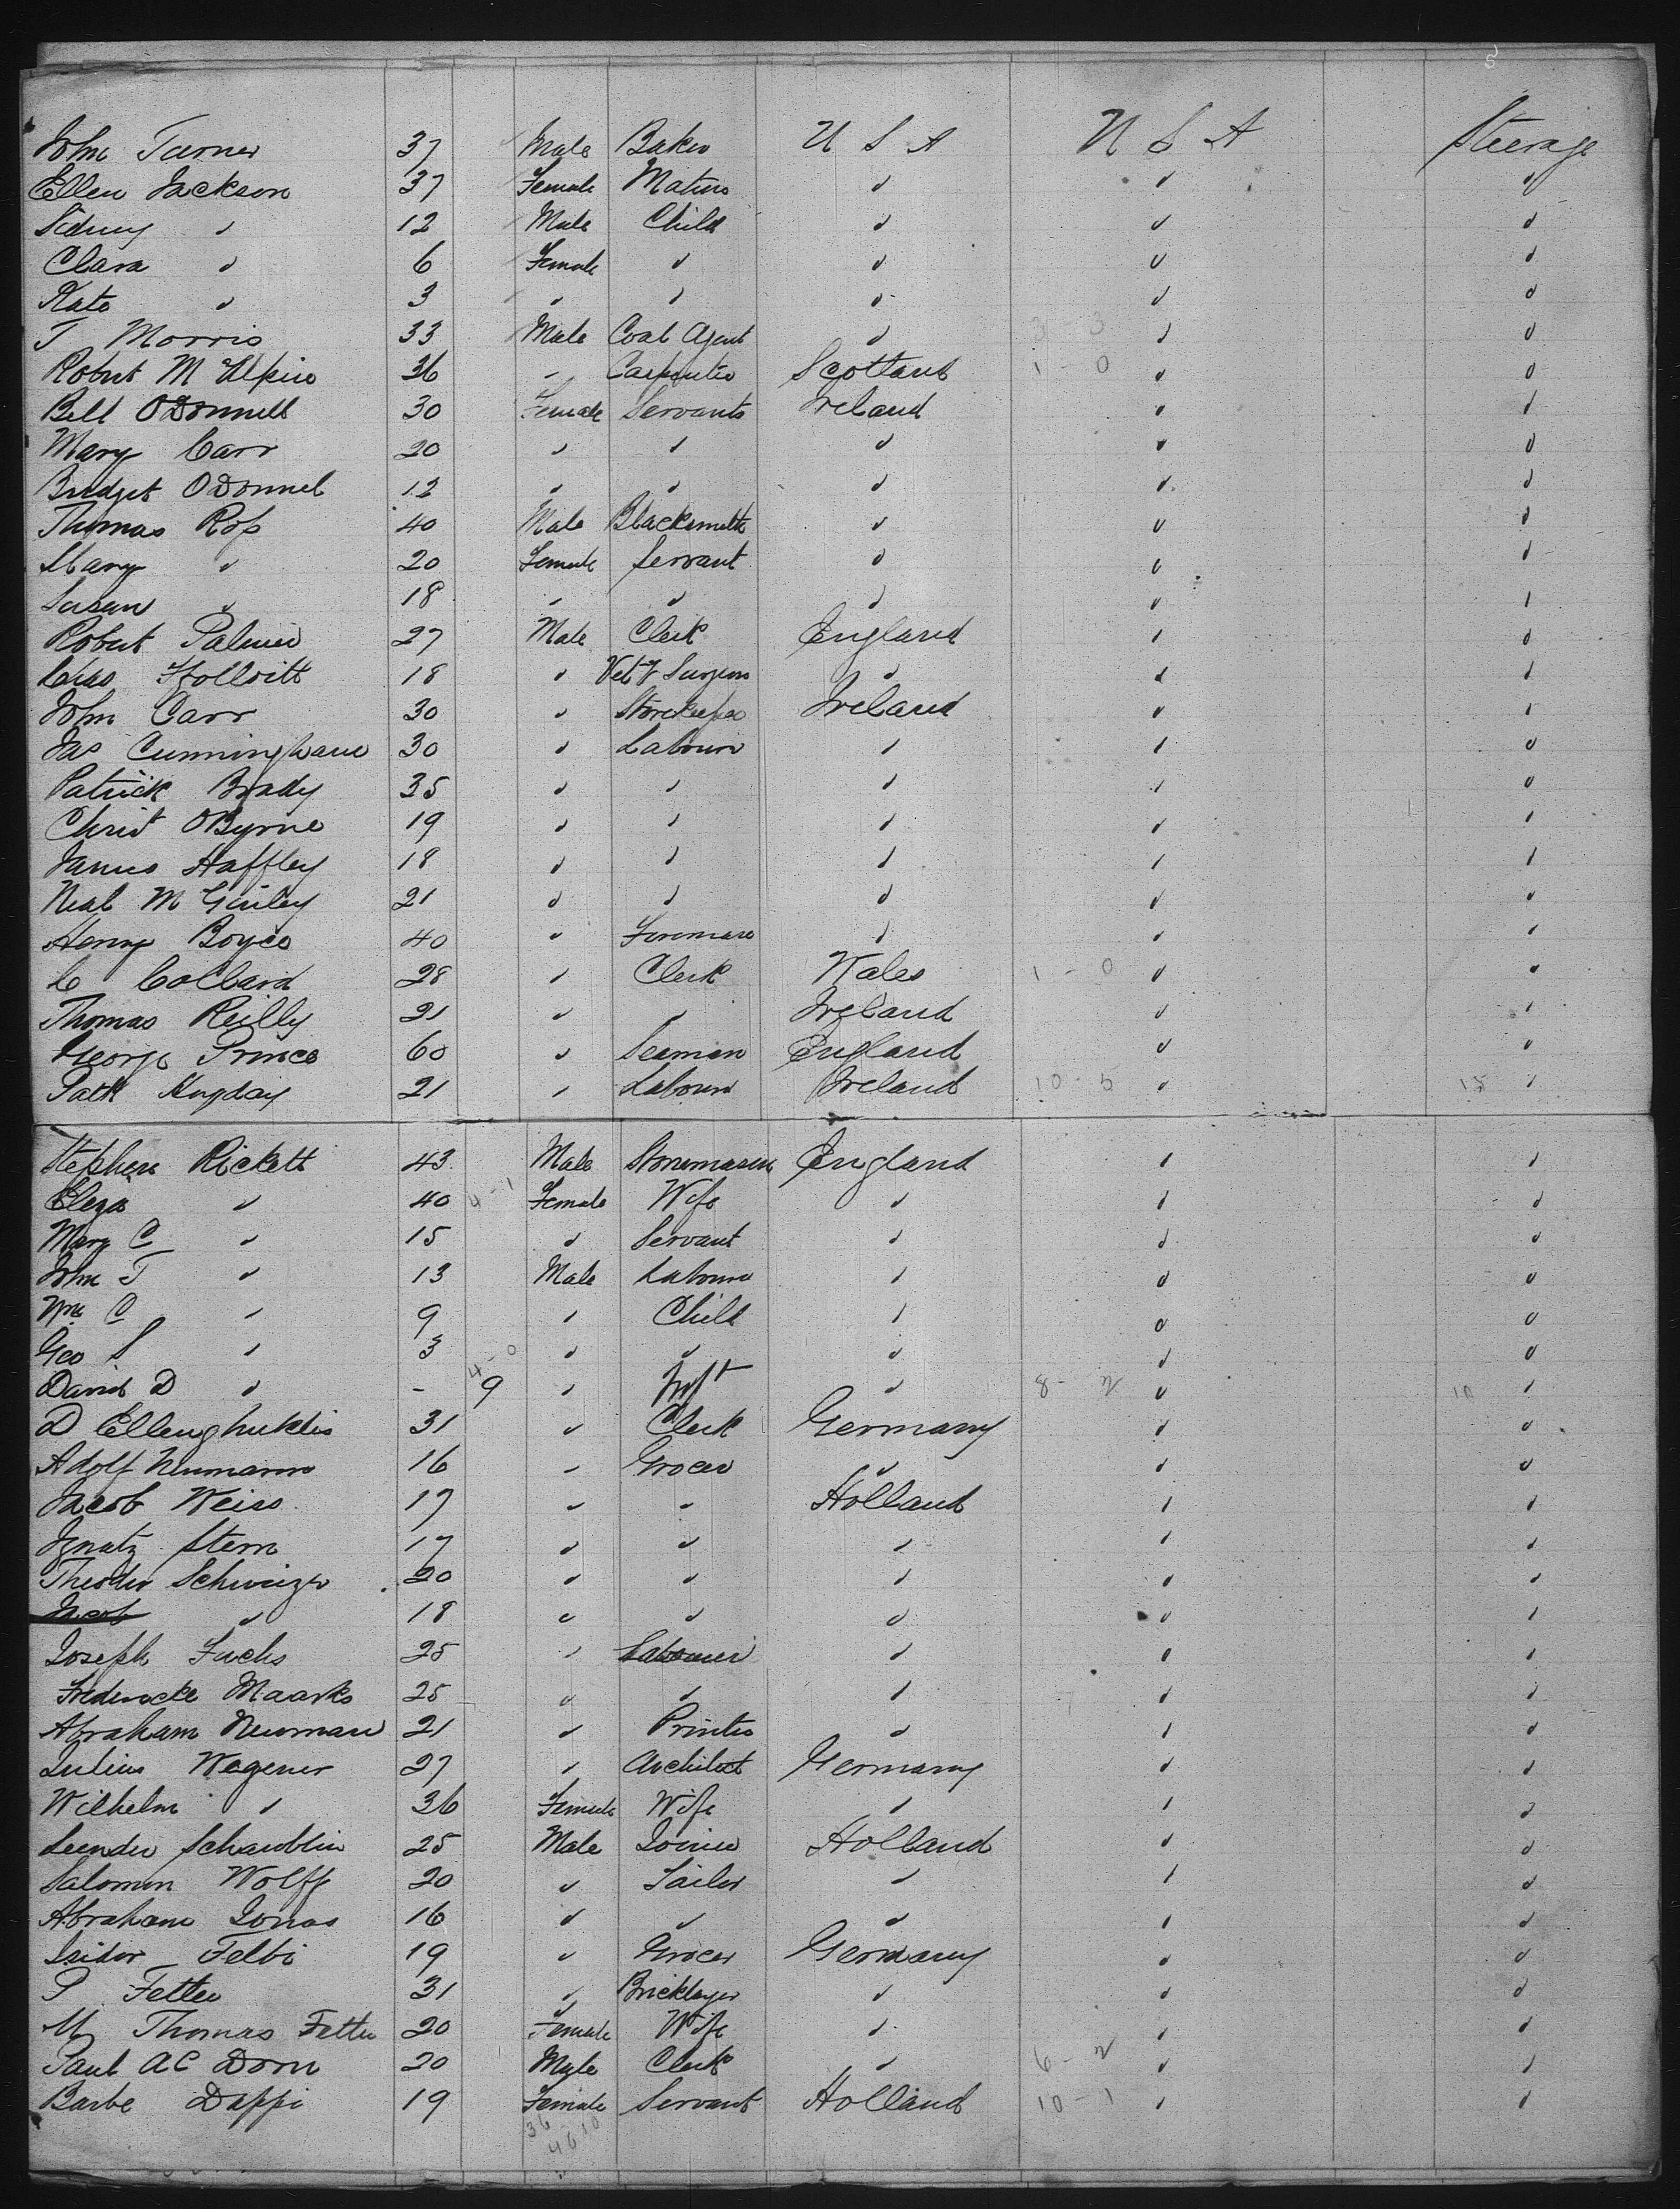 5
John Turner 37 Male Baker U S A U S A Steerage
Ellen Jackson 37 Female Matron " " "
Sidney " 12 Male Child " " "
Clara " 6 Female " " " "
Kate " 3 " " " " "
T Morris 33 Male Coal Agent " 3 3 " "
Robert McElpine 36 " Carpenter Scotland 1-0 " "
Bell ODonnell 30 Female Servants Ireland " "
Mary Carr 20 " " " " "
Bridget ODonnel 12 " " " " "
Thomas Ross 40 Male Blacksmith " " "
Mary " 20 Female Servant " " "
Susan " 18 " " " " "
Robert Palmer 27 Male Clerk England " "
Chas 18 " Vety Surgeon " " "
John Carr 30 " Storekeeper Ireland " "
Jas Cunningham 30 " Labourer " " "
Patrick Brady 35 " " " " "
Christ OByrne 19 " " " " "
James Haffley 18 " " " " "
Neal McGinley 21 " " " " "
Henry Boyce 40 " Fireman " " "
C Collard 28 " Clerk Wales 1-0 " "
Thomas Reilly 21 " " Ireland " "
George Prince 60 " Seaman England " "
Patk 21 " Labourer Ireland 10-5 " 15 "
Stephen Rickett 43 Male Stonemason England " "
Eliza " 40 4-1 Female Wife " " "
Mary C " 15 " Servant " " "
John T " 13 Male Labourer " " "
Wm C " 9 " Child " " "
Geo S " 3 " " " " "
David D " - 4-0 9 " Inft " 8-2 " 10 "
D 31 " Clerk Germany " "
Adolf Neumann 16 " Grocer " " "
Jacob Weiss 17 " " Holland " "
Ignatz Stern 17 " " " " "
Theodor Schweizer 20 " " " " "
Jacob " 18 " " " " "
Joseph Fuchs 25 " Labourer " " "
Fredericke Maarks 25 " " " " "
Abraham Neuman 21 " Printer " " "
Julius Wagener 27 " Architect Germany " "
Wilhelm " 36 Female Wife " " "
Leender Schaublin 25 Male Joiner Holland " "
Salomon Wolff 20 " Tailor " " "
Abraham Jonas 16 " " " " "
Isidor Felbi 19 " Grocer Germany " "
P Fetter 31 " Bricklayer " " "
Thomas Fetter 20 Female Wife " " "
Paul AC Dorn 20 Male Clerk " 6-2 " "
Barbe Dappi 19 Female Servant Holland 10-1 " "
36 10
46